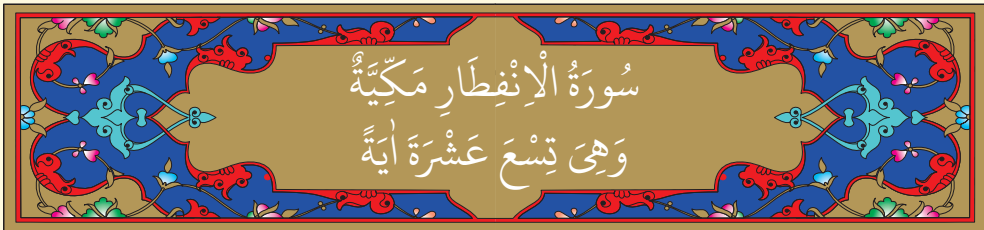 سُورَةُ الْاِنْفِطَارِ مَكِّيَّةٌ
وَهِىَ تِسْعَ عَشْرَةَ اٰيَةً